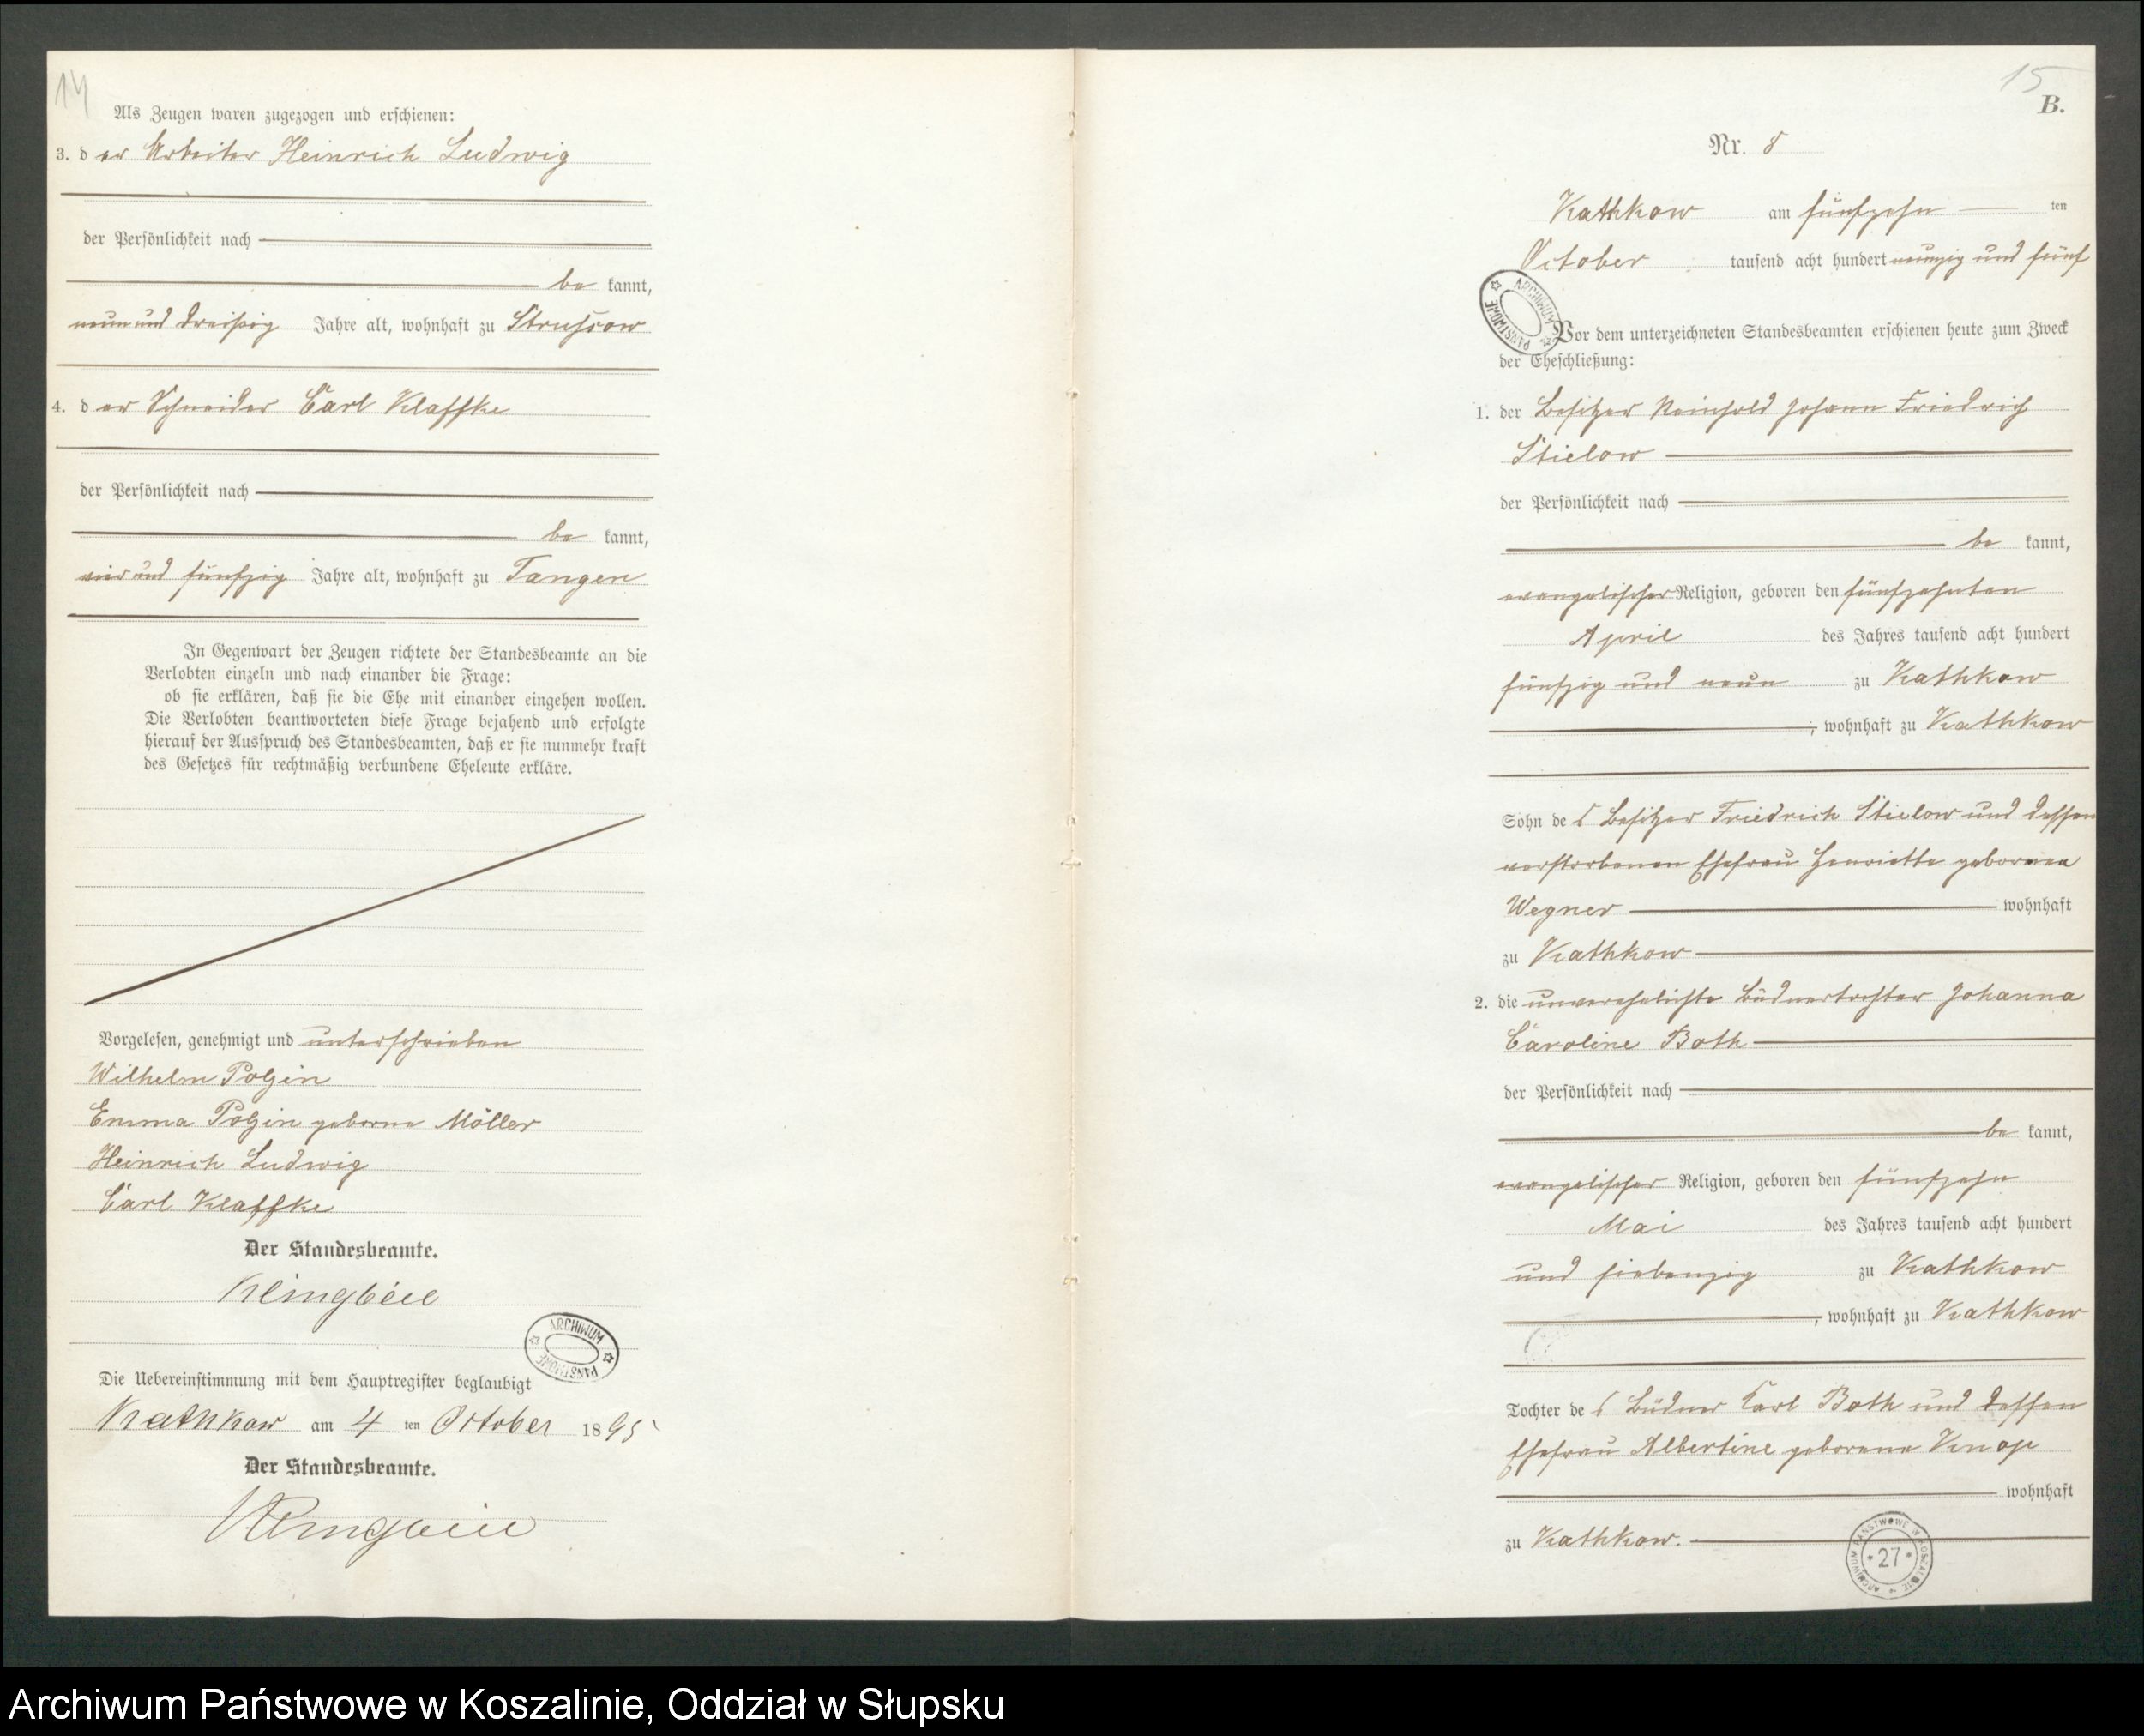 14
Als Zeugen waren zugezogen und erschienen:
3. der Arbeiter Heinrich Ludwig
der Persönlichkeit nach
be kannt,
neun und dreißig Jahre alt, wohnhaft zu Strussow
4. der Schneider Carl Klaffke
der Persönlichkeit nach
be kannt,
vier und fünfzig Jahre alt, wohnhaft zu Tangen
In Gegenwart der Zeugen richtete der Standesbeamte an die
Verlobten einzeln und nach einander die Frage:
ob sie erklären, daß sie die Ehe mit einander eingehen wollen.
Die Verlobten beantworteten diese Frage bejahend und erfolgte
hierauf der Ausspruch des Standesbeamten, daß er sie nunmehr kraft
des Gesetzes für rechtmäßig verbundene Eheleute erkläre.
Vorgelesen, genehmigt und unterschrieben
Wilhelm Polzin
Emma Polzin geborne Möller
Heinrich Ludwig
Carl Klaffke
Der Standesbeamte.
Klingbeil
ARCHIWUM PAŃSTWOWE
Die Uebereinstimmung mit dem Hauptregister beglaubigt
Kathkow am 4 ten October 1895
Der Standesbeamte.
Klingbeil
15
B.
Nr. 8
Kathkow am fünfzehn ten
October tausend acht hundert neunzig und fünf
ARCHIWUM PAŃSTWOWE
Vor dem unterzeichneten Standesbeamten erschienen heute zum Zweck
der Eheschließung:
1. der Besitzer Reinhold Johann Friedrich
Stielow
der Persönlichkeit nach
be kannt,
evangelischer Religion, geboren den fünfzehnten
April des Jahres tausend acht hundert
fünfzig und neun zu Kathkow
, wohnhaft zu Kathkow
Sohn des Besitzer Friedrich Stielow und dessen
verstorbenen Ehefrau Henriette gebornen
Wegner wohnhaft
zu Kathkow
2. die unverehelichte Büdnertochter Johanna
Caroline Both
der Persönlichkeit nach
be kannt,
evangelischer Religion, geboren den fünfzehn
Mai des Jahres tausend acht hundert
und siebenzig zu Kathkow
, wohnhaft zu Kathkow
Tochter des Büdner Carl Both und dessen
Ehefrau Albertine geborene Knop
wohnhaft
zu Kathkow.
ARCHIWUM PAŃSTWOWE W KOSZALINIE
* 27 *
Archiwum Państwowe w Koszalinie, Oddział w Słupsku